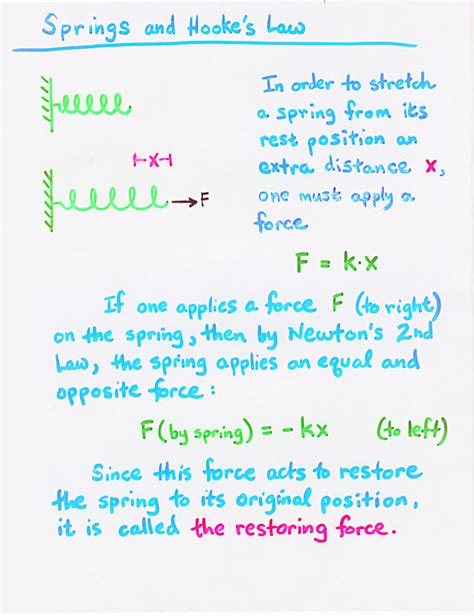 Springs and Hooke's Law
In order to stretch
a spring from its
rest position an
extra distance x,
one must apply a
force
x
F
F = k·x
If one applies a force F (to right)
on the spring, then by Newton's 2nd
Law, the spring applies an equal and
opposite force:
F(by spring) = -kx (to left)
Since this force acts to restore
the spring to its original position,
it is called the restoring force.